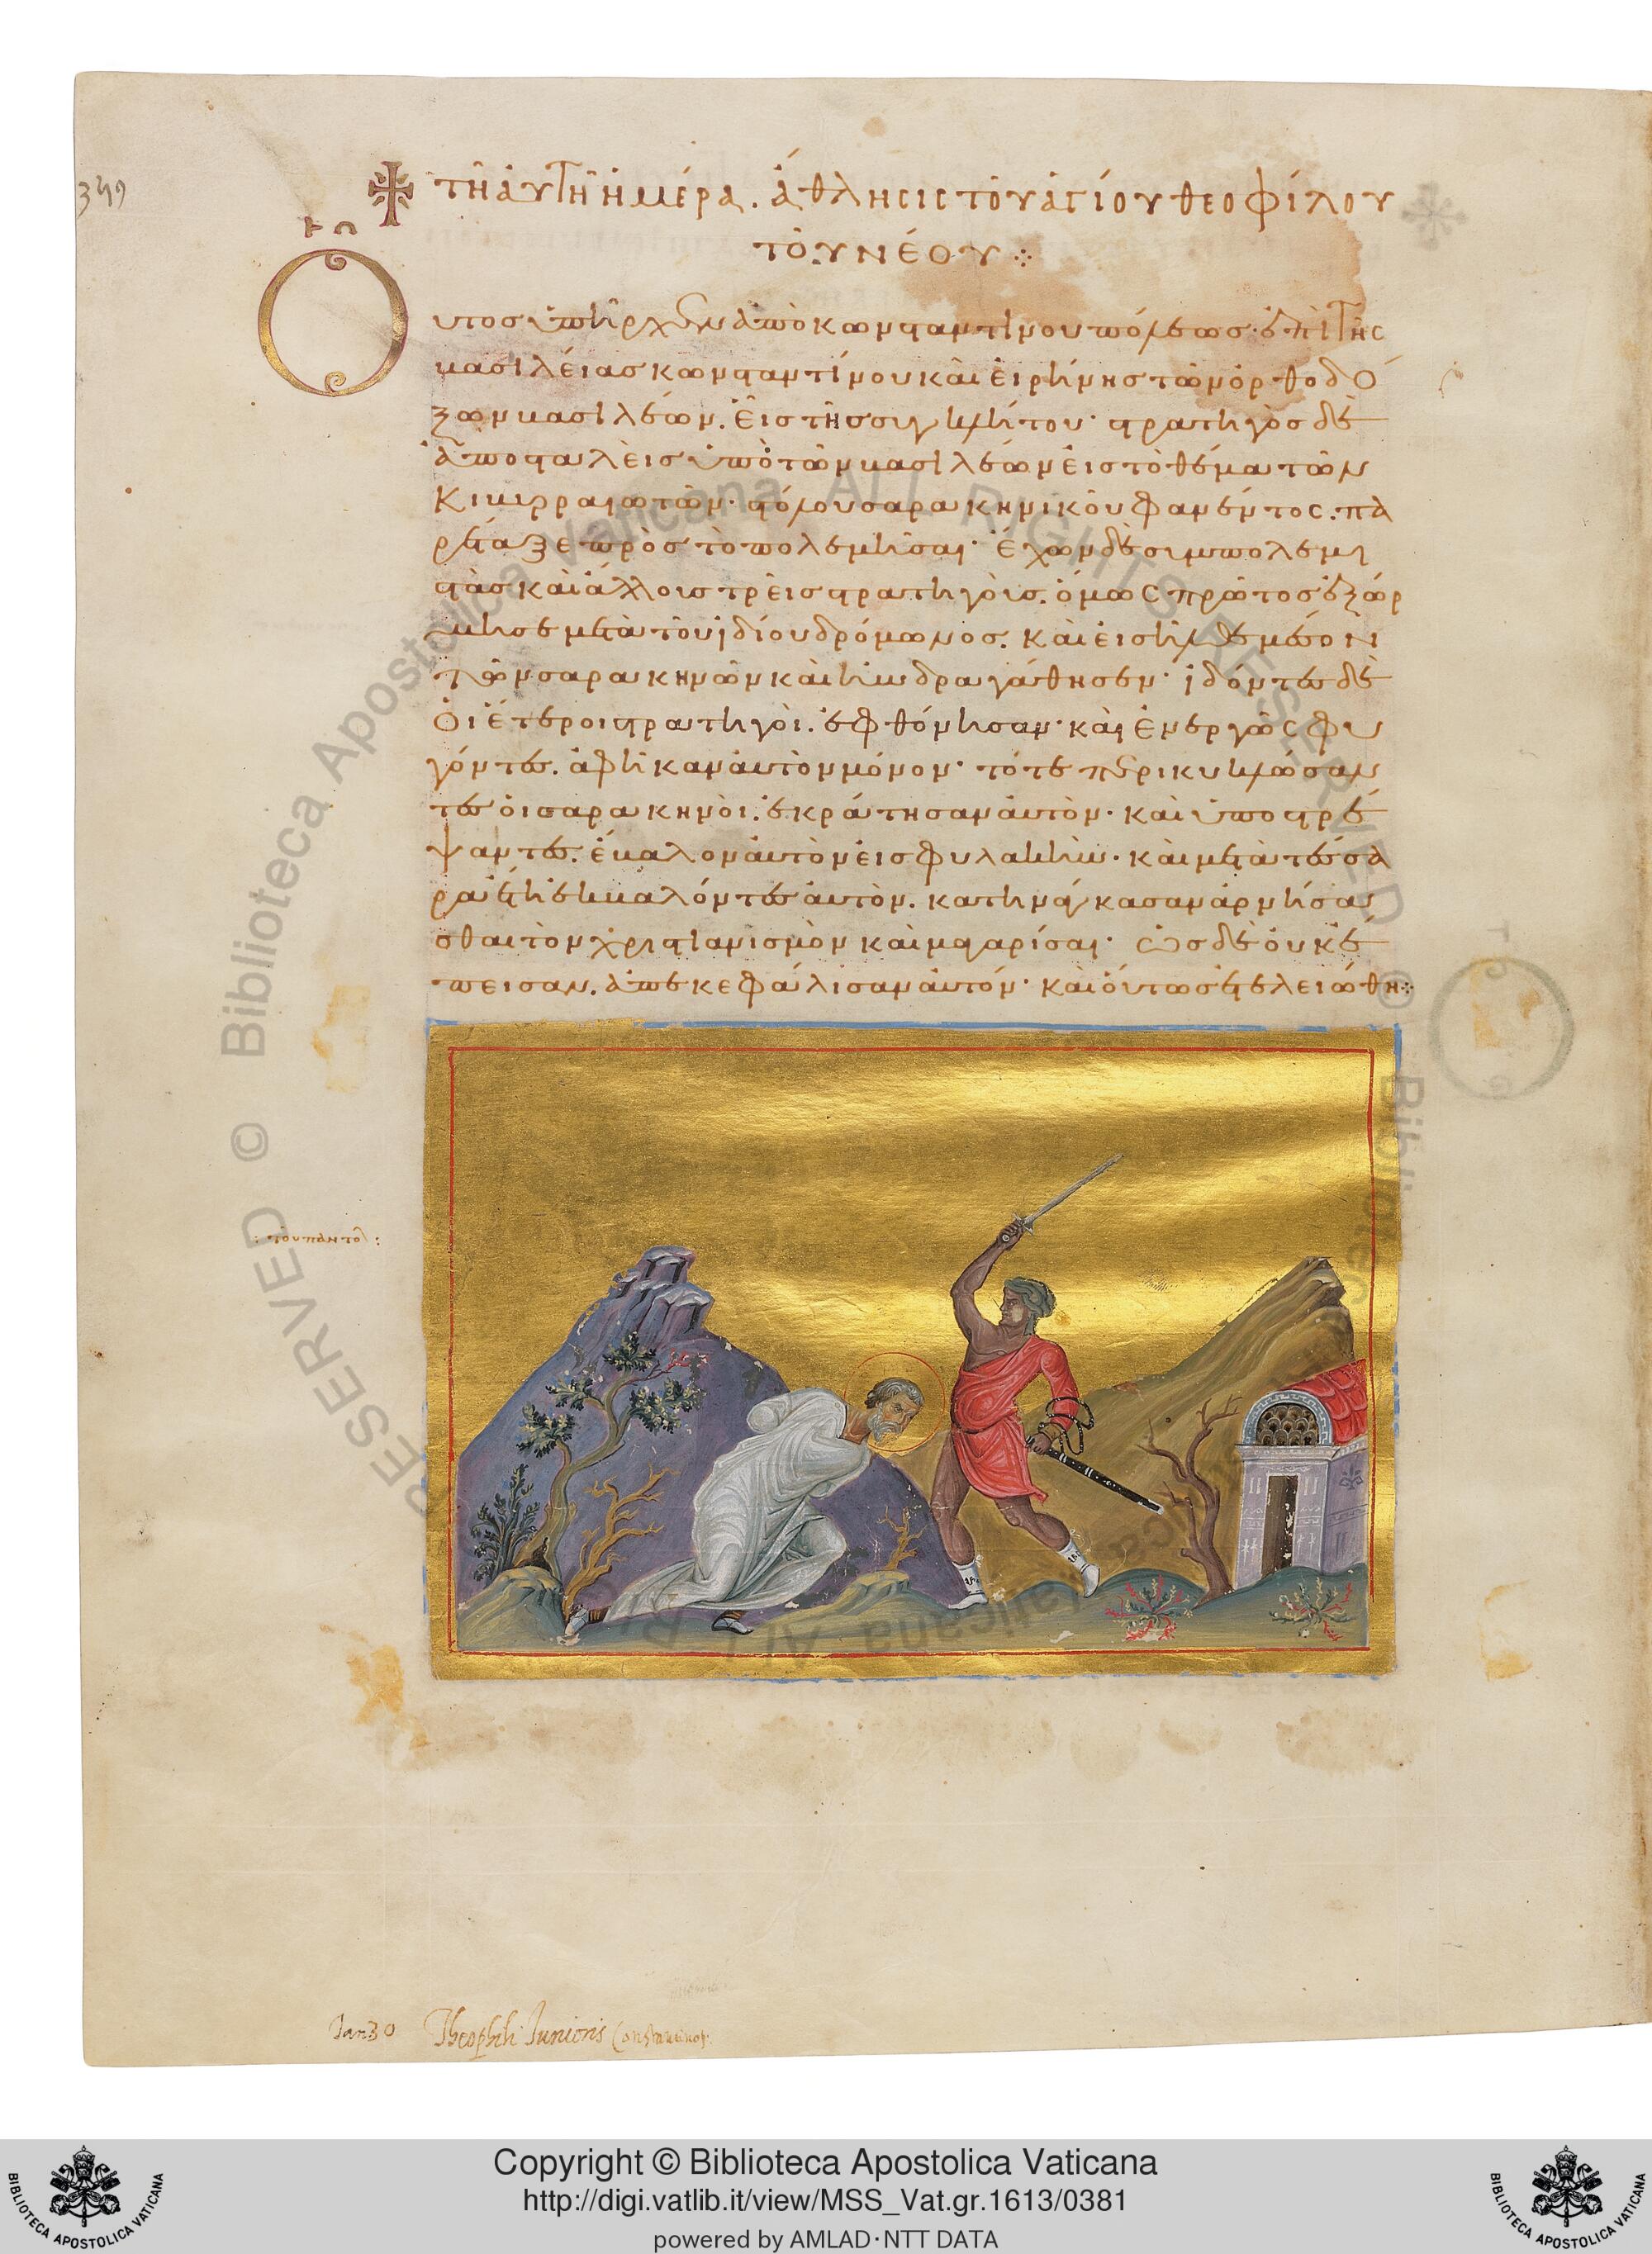 349
τῇ αὐτῇ ἡμέρᾳ. ἄθλησις τοῦ ἁγίου θεοφίλου
τοῦ νέου
Οὗτος ὑπῆρχεν ἀπὸ κωνσταντίνου πόλεως· ἐπὶ τῆς
βασιλείας κωνσταντίνου καὶ εἰρήνης τῶν ὀρθοδό
ξων βασιλέων. εἷς τῆς συγκλήτου· στρατηγὸς δὲ
ἀποσταλεὶς ὑπὸ τῶν βασιλέων εἰς τὸ θέμα τῶν
κιβυρραιωτῶν· στόλου σαρακηνικοῦ φανέντος. πα
ρετάξετο πρὸς τὸ πολεμῆσαι· ἔχων δὲ συμπολεμι
στὰς καὶ ἄλλους τρεῖς στρατηγούς. ὅμως πρῶτος ἐξώρ
μησε μετὰ τοῦ ἰδίου δρόμωνος. καὶ εἰσῆλθε μέσον
τῶν σαρακηνῶν καὶ ἠνδραγάθησεν· ἰδόντες δὲ
οἱ ἕτεροι στρατηγοὶ. ἐφθόνησαν· καὶ ἐνεργῶς φυ
γόντες. ἀφῆκαν αὐτὸν μόνον· τότε περικυκλώσαν
τες οἱ σαρακηνοὶ. ἐκράτησαν αὐτὸν· καὶ ὑποστρέ
ψαντες. ἔβαλον αὐτὸν εἰς φυλακὴν· καὶ μετὰ τέσσα
ρα ἔτη ἐκβαλόντες αὐτὸν. κατηνάγκασαν ἀρνήσα
σθαι τὸν χριστιανισμὸν καὶ μαγαρίσαι· ὡς δὲ οὐκ ἔ
πεισαν. ἀπεκεφάλισαν αὐτόν· καὶ οὕτως ἐτελειώθη
Jan 30 Theophili Junioris Constantinop.
© Biblioteca Apostolica Vaticana ALL RIGHTS RESERVED
Copyright © Biblioteca Apostolica Vaticana
http://digi.vatlib.it/view/MSS_Vat.gr.1613/0381
powered by AMLAD·NTT DATA
BIBLIOTECA APOSTOLICA VATICANA
BIBLIOTECA APOSTOLICA VATICANA